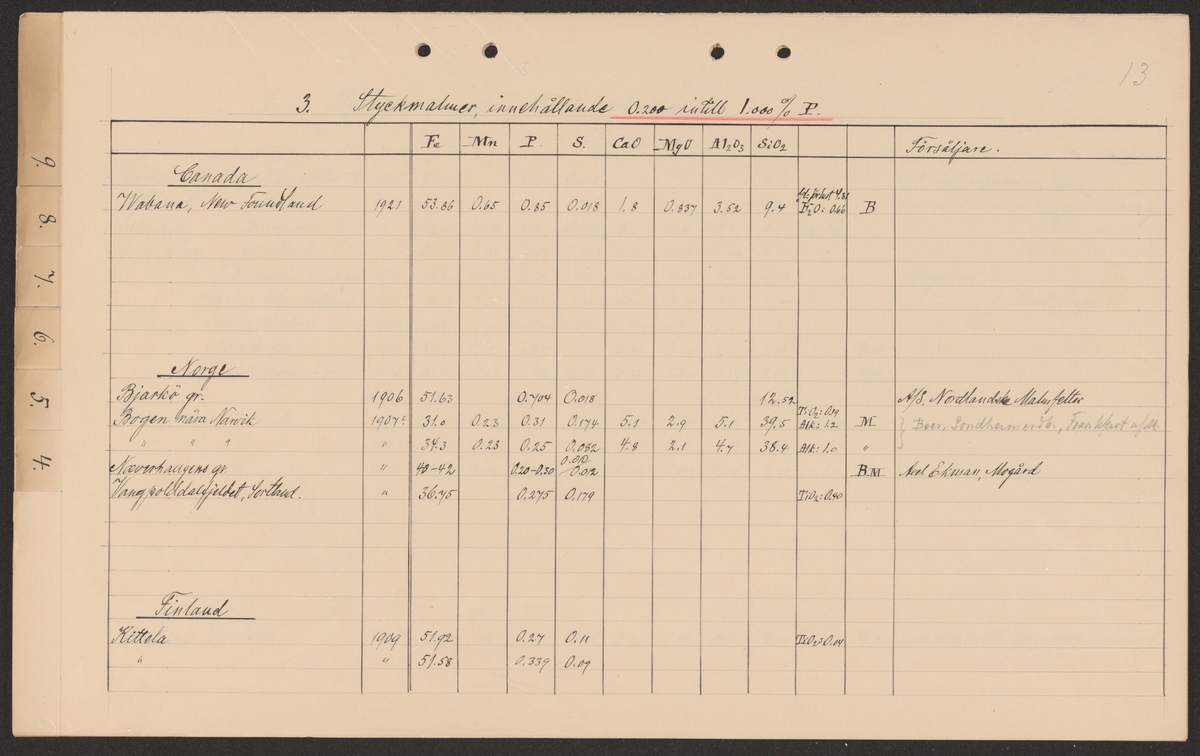 13
3. Styckmalmer, innehållande 0.200 intill 1.000 % P.
Fe Mn P. S. CaO MgO Al2O3 SiO2 Försäljare.
Canada
Wabana, New Foundland 1921 53.86 0.65 0.85 0.018 1.8 0.837 3.52 9.4 B
Norge
Bjarkö gr. 1906 51.63 0.704 0.018 12.52 A/S. Nordlandske Malmfelter
Bogen nära Narvik 1907 31.0 0.23 0.31 0.174 5.1 2.9 5.1 39.5 Alk: 1.2 M
" " " " 34.3 0.23 0.25 0.082 4.8 2.1 4.7 38.4 Alk: 1.0 "
Næverhaugens gr. " 40-42 0.20-0.30 0.02 B.M Axel Ekman, Mogård
Sortland. " 36.75 0.275 0.179 TiO2: 0.40
Finland
Kittela 1909 51.92 0.27 0.11 TiO2: 0.04
" " 51.58 0.339 0.09
9.
8.
7.
6.
5.
4.